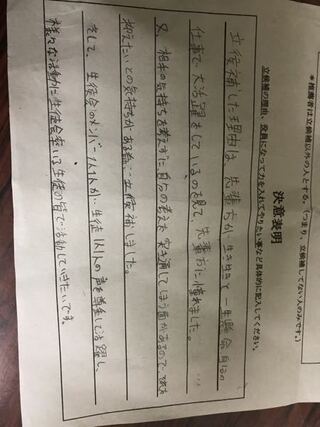 *推薦者は立候補者以外の人とする。(つまり、立候補してない人のみです。)
決意表明
立候補の理由、役員になって力を入れてやりたい事など具体的に記入してください。
立候補した理由は、先輩方が生き生きと一生懸命自らの
仕事で大活躍をしているのを見て、先輩方に憧れました。
又、相手の気持ちを考えずに自分の考えを突き通してしまう面があるので、それを
抑えたいとの気持ちがある為、立候補しました。
そして、生徒会のメンバー1人1人が、生徒1人1人の声を尊重して活躍し、
様々な活動に生徒会率いる生徒の皆で活動していきたいです。